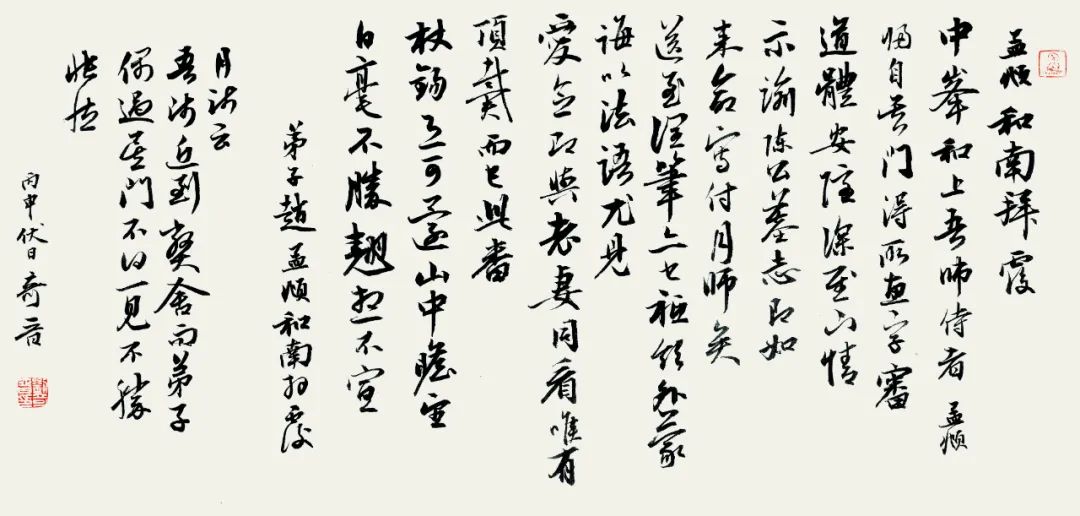 孟頫和南拜覆
中峯和上吾師侍者 孟頫
歸自吳門得所惠字審
道體安隱深至下情
示諭陳公墓志即如
來命寫付月師矣
送至潤筆亦已祗領外蒙
誨以法語尤見
愛念即與老妻同看唯有
頂戴而已此番
杖錫又可還山中瞻望
白毫不勝翹想不宣
弟子趙孟頫和南拜覆
月師云
吾師近到弊舍而弟子
偶過吳門不得一見不勝
悵
丙申伏日奇音